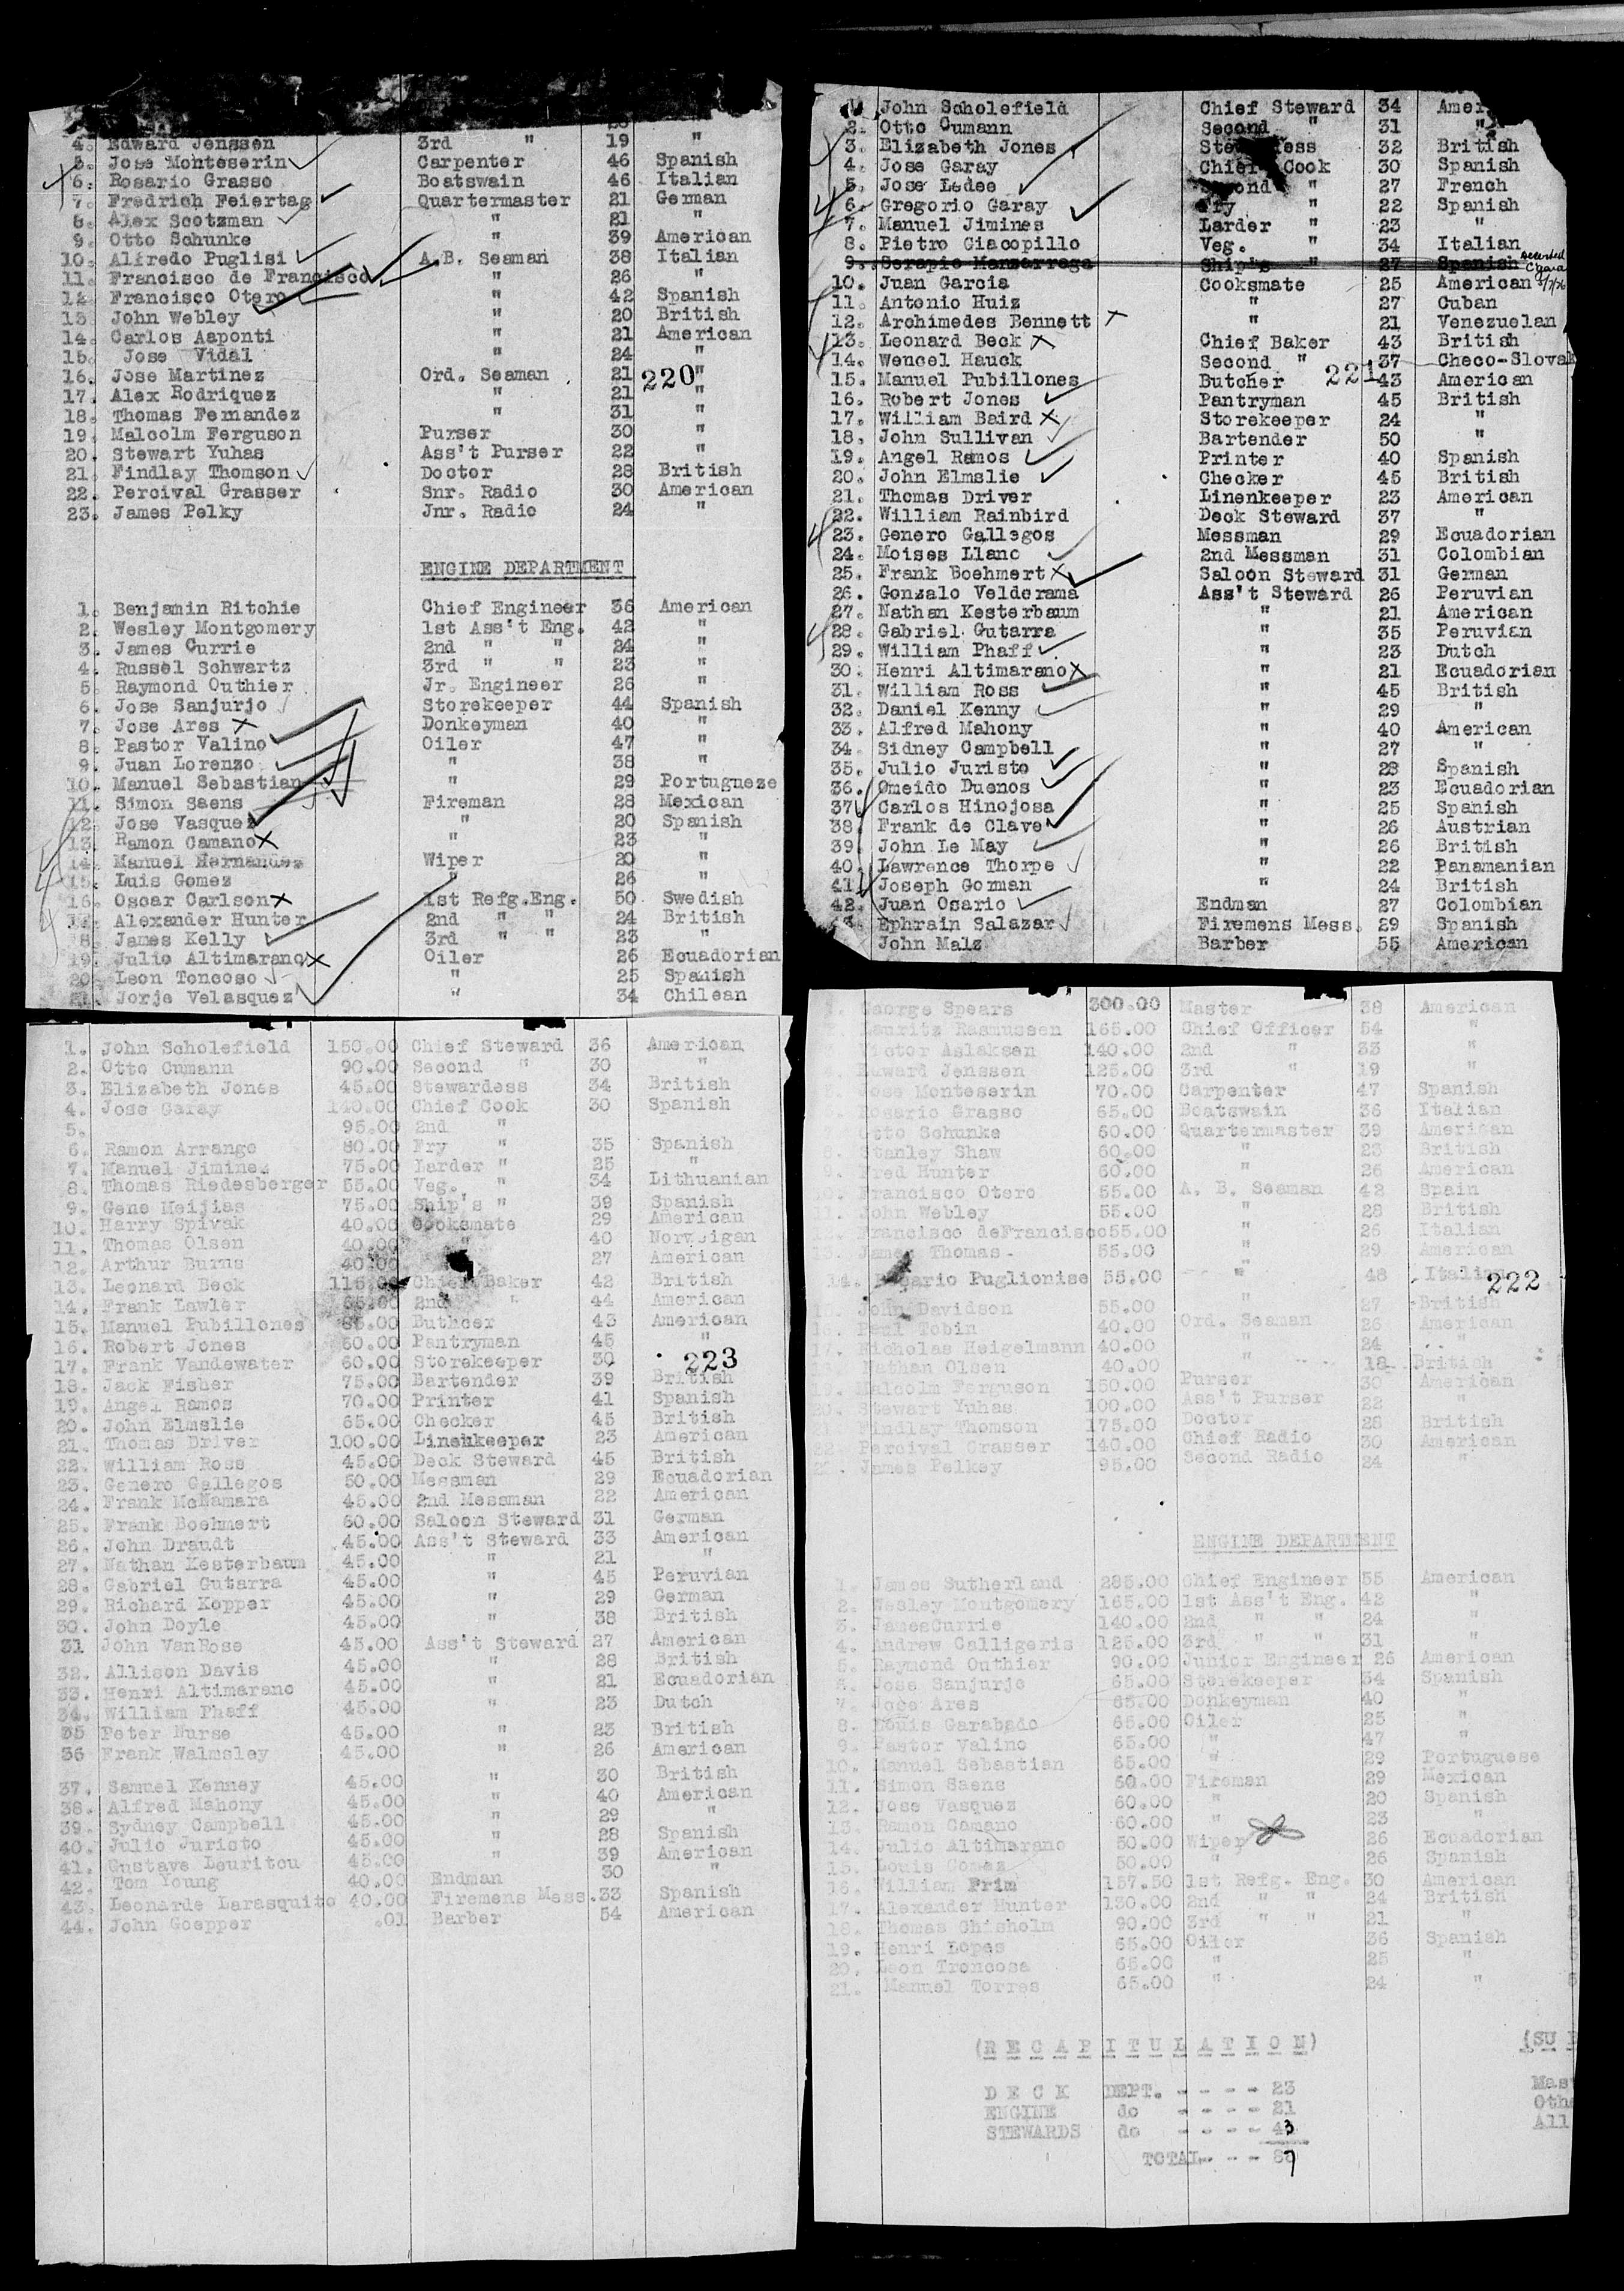 4. Edward Jenssen 3rd " 19 "
5. Jose Monteserin Carpenter 46 Spanish
6. Rosario Grasso Boatswain 46 Italian
7. Fredrich Feiertag Quartermaster 21 German
8. Alex Scotzman " 21 "
9. Otto Schunke " 39 American
10. Alfredo Puglisi A.B. Seaman 38 Italian
11. Francisco de Francisco " 26 "
12. Francisco Otero " 42 Spanish
13. John Webley " 20 British
14. Carlos Aaponti " 21 American
15. Jose Vidal " 24 "
16. Jose Martinez Ord. Seaman 21 "
220
17. Alex Rodriquez " 21 "
18. Thomas Fernandez " 31 "
19. Malcolm Ferguson Purser 30 "
20. Stewart Yuhas Ass't Purser 22 "
21. Findlay Thomson Doctor 28 British
22. Percival Grasser Snr. Radio 30 American
23. James Pelky Jnr. Radio 24 "
ENGINE DEPARTMENT
1. Benjamin Ritchie Chief Engineer 36 American
2. Wesley Montgomery 1st Ass't Eng. 42 "
3. James Currie 2nd " " 24 "
4. Russel Schwartz 3rd " " 23 "
5. Raymond Outhier Jr. Engineer 26 "
6. Jose Sanjurjo Storekeeper 44 Spanish
7. Jose Ares Donkeyman 40 "
8. Pastor Valino Oiler 47 "
9. Juan Lorenzo " 38 "
10. Manuel Sebastian " 29 Portuguese
11. Simon Saens Fireman 28 Mexican
12. Jose Vasquez " 20 Spanish
13. Ramon Camano " 23 "
14. Manuel Hernandez Wiper 20 "
15. Luis Gomez " 26 "
16. Oscar Carlson 1st Refg.Eng. 50 Swedish
17. Alexander Hunter 2nd " " 24 British
18. James Kelly 3rd " " 23 "
19. Julio Altimarano Oiler 26 Ecuadorian
20. Leon Toncoso " 25 Spanish
21. Jorje Velasquez " 34 Chilean
1. John Scholefield Chief Steward 34 Amer
2. Otto Cumann Second " 31 "
3. Elizabeth Jones Stewardess 32 British
4. Jose Garay Chief Cook 30 Spanish
5. Jose Ledee Second " 27 French
6. Gregorio Garay Fry " 22 Spanish
7. Manuel Jimines Larder " 23 "
8. Pietro Ciacopillo Veg. " 34 Italian
9. Serapio Manzarraga Ship's " 27 Spanish Deserted
10. Juan Garcia Cooksmate 25 American
11. Antonio Huiz " 27 Cuban
12. Archimedes Bennett " 21 Venezuelan
13. Leonard Beck Chief Baker 43 British
14. Wencel Hauck Second " 37 Checo-Slovak
221
15. Manuel Pubillones Butcher 43 American
16. Robert Jones Pantryman 45 British
17. William Baird Storekeeper 24 "
18. John Sullivan Bartender 50 "
19. Angel Ramos Printer 40 Spanish
20. John Elmslie Checker 45 British
21. Thomas Driver Linenkeeper 23 American
22. William Rainbird Deck Steward 37 "
23. Genero Gallegos Messman 29 Ecuadorian
24. Moises Llano 2nd Messman 31 Colombian
25. Frank Boehmert Saloon Steward 31 German
26. Gonzalo Velderama Ass't Steward 26 Peruvian
27. Nathan Kesterbaum " 21 American
28. Gabriel Gutarra " 35 Peruvian
29. William Phaff " 23 Dutch
30. Henri Altimarano " 21 Ecuadorian
31. William Ross " 45 British
32. Daniel Kenny " 29 "
33. Alfred Mahony " 40 American
34. Sidney Campbell " 27 "
35. Julio Juristo " 28 Spanish
36. Omeido Duenos " 23 Ecuadorian
37. Carlos Hinojosa " 25 Spanish
38. Frank de Clave " 26 Austrian
39. John Le May " 26 British
40. Lawrence Thorpe " 22 Panamanian
41. Joseph Gorman " 24 British
42. Juan Osario Endman 27 Colombian
43 Ephrain Salazar Firemens Mess. 29 Spanish
John Malz Barber 55 American
1. John Scholefield 150.00 Chief Steward 36 American
2. Otto Cumann 90.00 Second " 30 "
3. Elizabeth Jones 45.00 Stewardess 34 British
4. Jose Garay 140.00 Chief Cook 30 Spanish
5. 95.00 2nd "
6. Ramon Arrango 80.00 Fry " 35 Spanish
7. Manuel Jimines 75.00 Larder " 25 "
8. Thomas Riedesberger 55.00 Veg. " 34 Lithuanian
9. Gene Meijias 75.00 Ship's " 39 Spanish
10. Harry Spivak 40.00 Cooksmate 29 American
11. Thomas Olsen 40.00 " 40 Norweigan
12. Arthur Burns 40.00 27 American
13. Leonard Beck 115.00 Chief Baker 42 British
14. Frank Lawler 85.00 2nd " 44 American
15. Manuel Pubillones 85.00 Buthcer 43 American
16. Robert Jones 60.00 Pantryman 45 "
17. Frank Vandewater 60.00 Storekeeper 30
223
18. Jack Fisher 75.00 Bartender 39 British
19. Angel Ramos 70.00 Printer 41 Spanish
20. John Elmslie 65.00 Checker 45 British
21. Thomas Driver 100.00 Linenkeeper 23 American
22. William Ross 45.00 Deck Steward 45 British
23. Genero Gallegos 50.00 Messman 29 Ecuadorian
24. Frank McNamara 45.00 2nd Messman 22 American
25. Frank Boehmert 60.00 Saloon Steward 31 German
26. John Draudt 45.00 Ass't Steward 33 American
27. Nathan Kesterbaum 45.00 " 21 "
28. Gabriel Gutarra 45.00 " 45 Peruvian
29. Richard Kopper 45.00 " 29 German
30. John Doyle 45.00 " 38 British
31 John VanRose 45.00 Ass't Steward 27 American
32. Allison Davis 45.00 " 28 British
33. Henri Altimarano 45.00 " 21 Ecuadorian
34. William Phaff 45.00 " 23 Dutch
35 Peter Nurse 45.00 " 23 British
36 Frank Walmsley 45.00 " 26 American
37. Samuel Kenney 45.00 " 30 British
38. Alfred Mahony 45.00 " 40 American
39. Sydney Campbell 45.00 " 29 "
40. Julio Juristo 45.00 " 28 Spanish
41. Gustave Louritou 45.00 " 39 American
42. Tom Young 40.00 Endman 30 "
43. Leonarde Larasquito 40.00 Firemens Mess. 33 Spanish
44. John Goepper .01 Barber 54 American
George Spears 300.00 Master 38 American
Lauritz Rasmussen 165.00 Chief Officer 54 "
Victor Aslaksen 140.00 2nd " 33 "
Edward Jenssen 125.00 3rd " 19 "
Jose Monteserin 70.00 Carpenter 47 Spanish
Rosario Grasso 65.00 Boatswain 36 Italian
Otto Schunke 60.00 Quartermaster 39 American
8. Stanley Shaw 60.00 " 23 British
9. Fred Hunter 60.00 " 26 American
10. Francisco Otero 55.00 A. B. Seaman 42 Spain
11. John Webley 55.00 " 28 British
12. Francisco deFrancisco 55.00 " 26 Italian
13. James Thomas 55.00 " 29 American
14. Rosario Puglionise 55.00 " 48 Italian
222
15. John Davidson 55.00 " 27 British
16. Paul Tobin 40.00 Ord. Seaman 26 American
17. Nicholas Heigelmann 40.00 " 24 "
Nathan Olsen 40.00 " 18 British
19. Malcolm Ferguson 150.00 Purser 30 American
20. Stewart Yuhas 100.00 Ass't Purser 22 "
Findlay Thomson 175.00 Doctor 28 British
22. Percival Grasser 140.00 Chief Radio 30 American
23. James Pelkey 95.00 Second Radio 24 "
ENGINE DEPARTMENT
1. James Sutherland 285.00 Chief Engineer 55 American
2. Wesley Montgomery 165.00 1st Ass't Eng. 42 "
3. JamesCurrie 140.00 2nd " " 24 "
4. Andrew Calligeris 125.00 3rd " " 31 "
5. Raymond Outhier 90.00 Junior Engineer 26 American
6. Jose Sanjurjo 65.00 Storekeeper 34 Spanish
7. Jose Ares 65.00 Donkeyman 40 "
8. Louis Garabado 65.00 Oiler 25 "
9. Pastor Valino 65.00 " 47 "
10. Manuel Sebastian 65.00 " 29 Portuguese
11. Simon Saens 60.00 Fireman 29 Mexican
12. Jose Vasquez 60.00 " 20 Spanish
13. Ramon Camano 60.00 " 23 "
14. Julio Altimarano 50.00 Wiper 26 Ecuadorian
15. Louis Gomez 50.00 " 26 Spanish
16. William Prim 157.50 1st Refg. Eng. 30 American
17. Alexander Hunter 130.00 2nd " " 24 British
18. Thomas Chisholm 90.00 3rd " " 21 "
19. Henri Lopes 65.00 Oiler 36 Spanish
20. Leon Troncosa 65.00 " 25 "
21. Manuel Torres 65.00 " 24 "
(RECAPITULATION) (SU
DECK DEPT. - - - - 23 Mas
ENGINE do - - - - 21 Oth
STEWARDS do - - - - 43 All
TOTAL- - - - 87